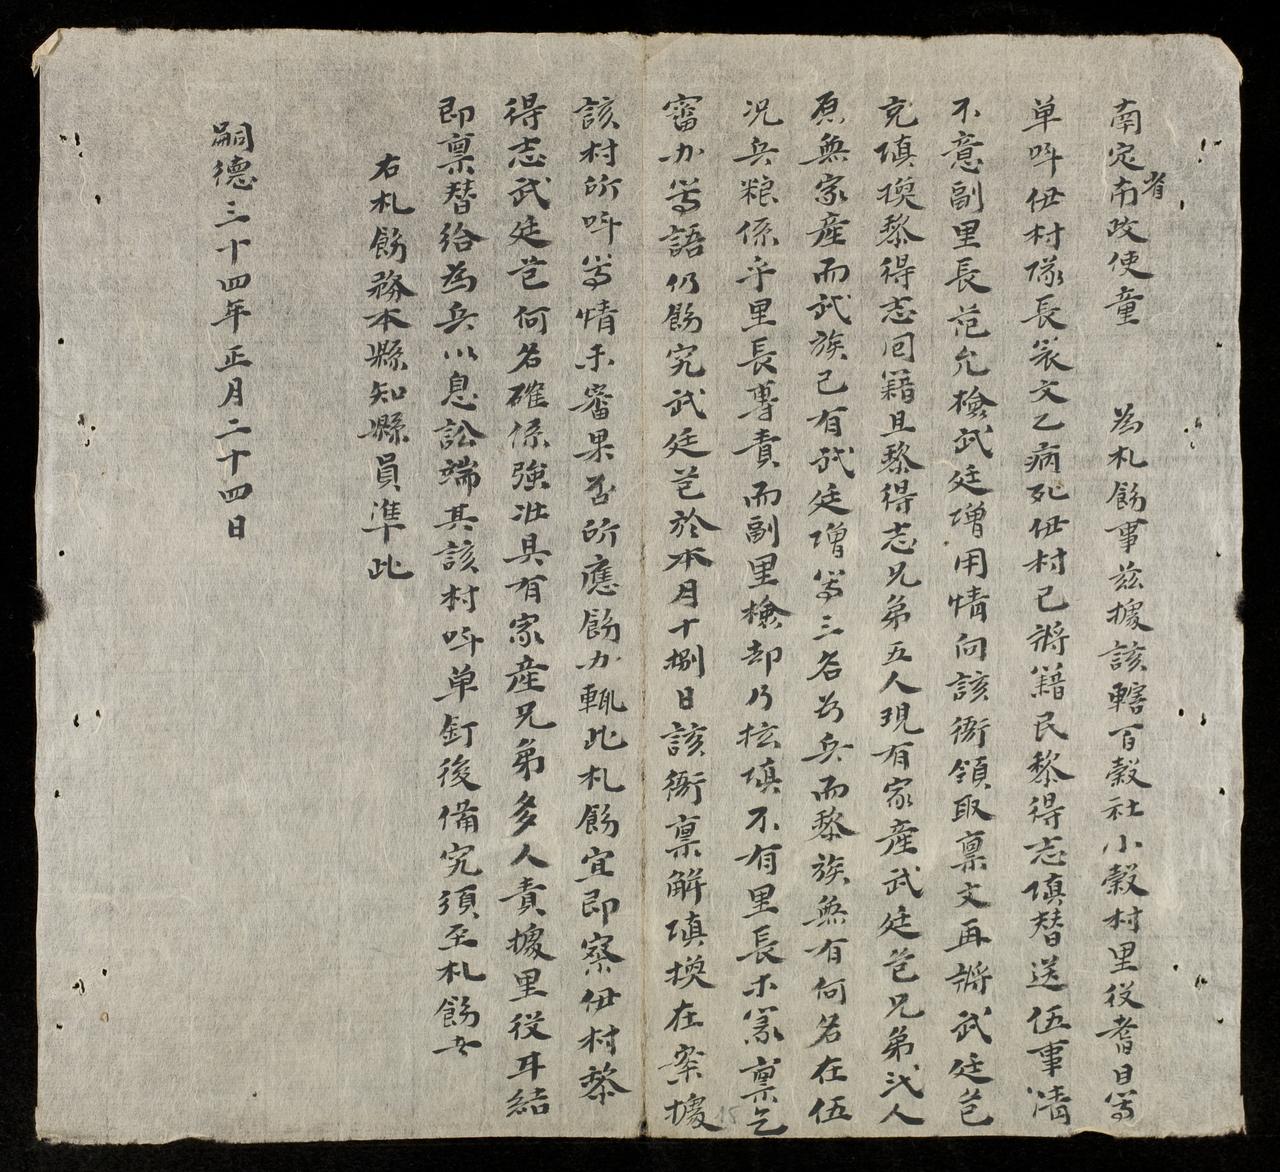 南定省南政使童　為札飭事茲據該轄百穀社小穀村里役耆目等
单呌伊村隊長裴文乙病死伊村已將籍民黎得志填替送伍事清
不意副里長范允檢武廷增用情向該衙領取禀文再將武廷芭
充填換黎得志囘籍且黎得志兄弟五人現有家產武廷芭兄弟弍人
原無家產而武族已有武廷增等三名为兵而黎族無有何名在伍
况兵粮係乎里長專責而副里檢却乃抎填不有里長未蒙禀乞
審办等語仍飭究武廷芭於本月十捌日該衙禀解填換在案據
該村所呌等情未審果否所應飭办輒此札飭宜即察伊村黎
得志武廷芭何名確係強壮具有家產兄弟多人責據里役耳結
即禀替給為兵以息訟端其該村呌单釘後備究須至札飭者
右札飭務本縣知縣員準此
嗣德三十四年正月二十四日